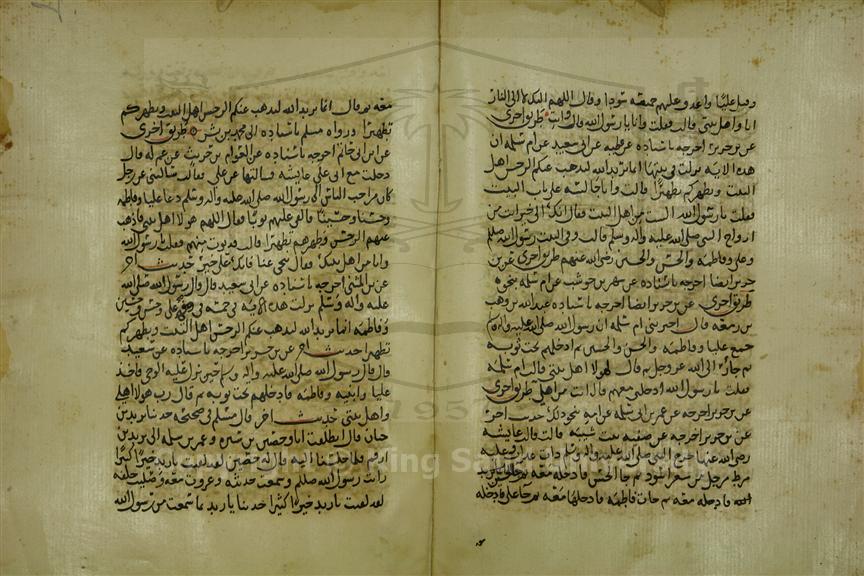 وقبل عليا واغدق عليهم خميصة سودا وقال اللهم اليك لا الى النار
انا واهل بيتي قالت فقلت وانا يا رسول الله قال وانت طريق اخرى
عن بن جرير اخرجه باسناده عن عطيه عن ابى سعيد عن ام سلمه ان
هذه الايه نزلت في بيتها انما يريد الله ليذهب عنكم الرجس اهل
البيت ويطهركم تطهيرا قالت وانا جالسه على باب البيت
فقلت يا رسول الله الست من اهل البيت فقال انك الى خير انت من
ازواج النبي صلى الله عليه وآله وسلم قالت وفي البيت رسول الله صلعم
وعلى وفاطمه والحسن والحسين رضى الله عنهم طريق اخرى عن بن
جرير ايضا اخرجه باسناده عن شهر بن حوشب عن ام سلمه بنحوه
طريق اخرى عن بن جرير ايضا اخرجه باسناده عبد الله بن وهب
بن زمعه قال اخبرتنى ام سلمه ان رسول الله صلى الله عليه واله وسلم
جمع عليا وفاطمه والحسن والحسين ثم ادخلهم تحت ثوبه
ثم جأر الى الله عز وجل ثم قال هولا اهل بيتى قالت ام سلمه
فقلت يا رسول الله ادخلنى معهم قال انت من اهلى طريق اخرى
عن بن جرير اخرجه عن عمر بن ابى سلمه عن امه بنحو ذلك حديث اخر
عن بن جرير اخرجه عن صفيه بنت شيبه قالت قالت عايشه
رضى الله عنها خرج النبي صلى الله عليه واله وسلم ذات غداه وعليه
مرط مرحل من شعر اسود ثم جا الحسن فادخله معه ثم جا الحسين
فادخله معه ثم جات فاطمه فادخلها معه ثم جا على فادخله
معه ثم قال انما يريد الله ليذهب عنكم الرجس اهل البيت ويطهركم
تطهيرا ورواه مسلم باسناده الى محمد بن بشر طريق اخرى
عن ابن ابى حاتم اخرجه باسناده عن العوام بن حوشب عن عم له قال
دخلت مع ابى على عايشه فسالتها عن على فقالت تسالنى عن رجل
كان من احب الناس الى رسول الله صلى الله عليه وآله وسلم دعا عليا وفاطمه
وحسنا وحسينا فالقى عليهم ثوبا فقال اللهم هولا اهل بيتى فاذهب
عنهم الرجس وطهرهم تطهيرا قالت فدنوت منهم فقلت يا رسول الله
وانا من اهل بيتك فقال تنحى عنا فانك على خير حديث اخر
عن بن المثنى اخرجه باسناده عن ابى سعيد قال قال رسول الله صلى الله
عليه واله وسلم نزلت هذه الآيه في خمسه فى وفى على وحسن وحسين
وفاطمه انما يريد الله ليذهب عنكم الرجس اهل البيت ويطهركم
تطهيرا حديث اخر عن بن جرير اخرجه باسناده عن سعيد
قال قال رسول الله صلى الله عليه واله وسلم حين نزل عليه الوحى فاخذ
عليا وابنيه وفاطمه فادخلهم تحت ثوبه ثم قال رب هولا اهلى
واهل بيتى حديث اخر قال مسلم فى صحيحه حدثنا يزيد بن
حيان قال انطلقت انا وحصين بن سبره وعمر بن سلمه الى زيد بن
ارقم فلما جلسنا اليه قال له حصين لقد لقيت يا زيد خيرا كثيرا
رايت رسول الله صلعم وسمعت حديثه وغزوت معه وصليت خلفه
لقد لقيت يا زيد خيرا كثيرا حدثنا يا زيد ما سمعت من رسول الله
1957
King Saud